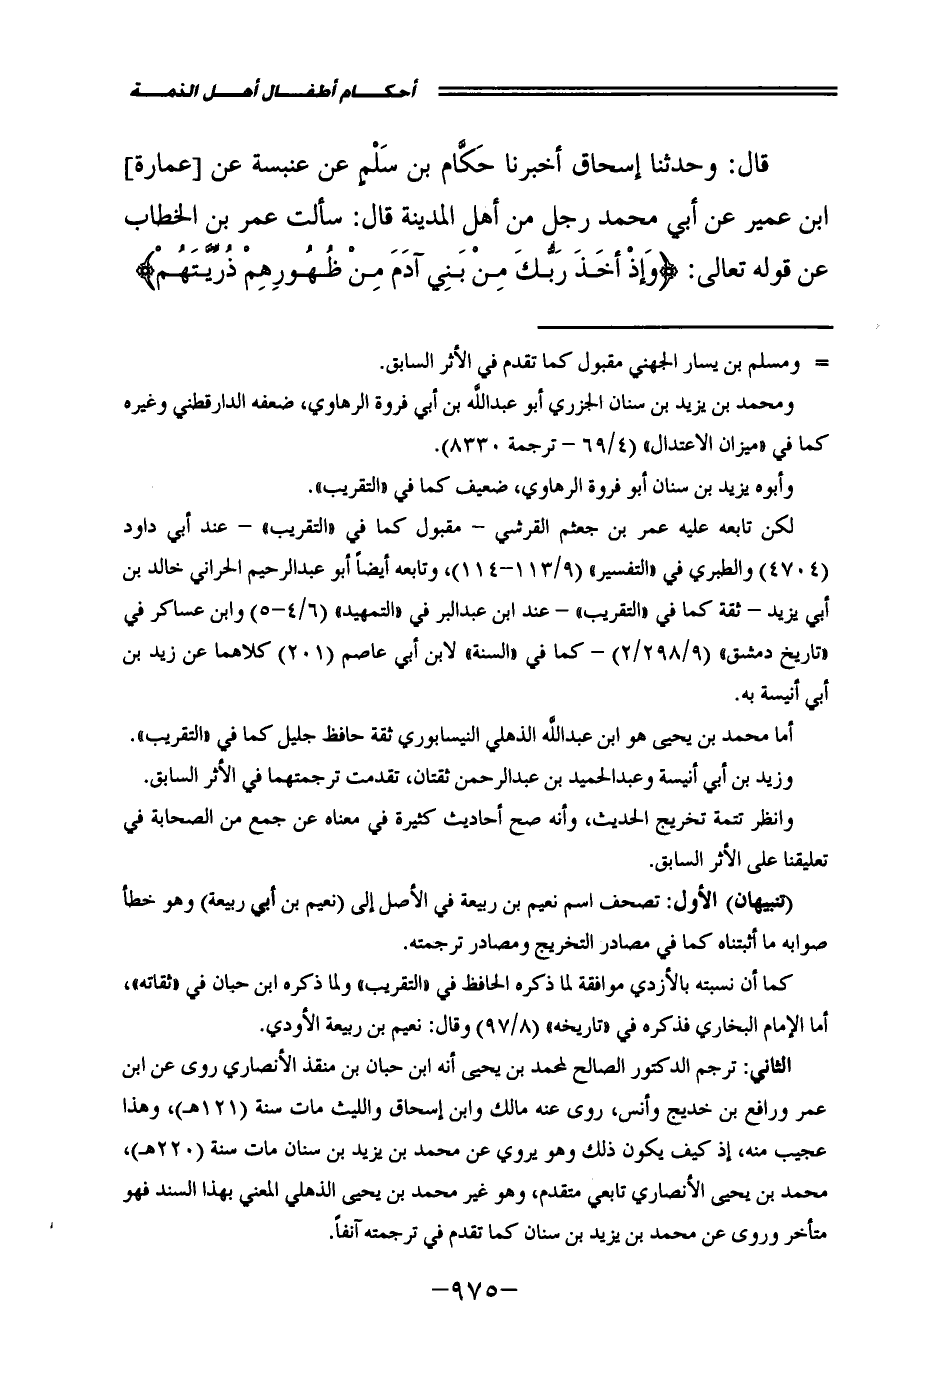 أحكــام أطفــال أهــل الذمــة
قال: وحدثنا إسحاق أخبرنا حَكَّام بن سَلْمٍ عن عنبسة عن [عمارة]
ابن عمير عن أبي محمد رجل من أهل المدينة قال: سألت عمر بن الخطاب
عن قوله تعالى: ﴿وَإِذْ أَخَذَ رَبُّكَ مِنْ بَنِي آدَمَ مِنْ ظُهُورِهِمْ ذُرِّيَّتَهُمْ﴾
= ومسلم بن يسار الجهني مقبول كما تقدم في الأثر السابق.
ومحمد بن يزيد بن سنان الجزري أبو عبداللَّه بن أبي فروة الرهاوي، ضعفه الدارقطني وغيره
كما في «ميزان الاعتدال» (٦٩/٤ – ترجمة ٨٣٣٠).
وأبوه يزيد بن سنان أبو فروة الرهاوي، ضعيف كما في «التقريب».
لكن تابعه عليه عمر بن جعثم القرشي – مقبول كما في «التقريب» – عند أبي داود
(٤٧٠٤) والطبري في «التفسير» (١١٣/٩–١١٤)، وتابعه أيضاً أبو عبدالرحيم الحراني خالد بن
أبي يزيد – ثقة كما في «التقريب» – عند ابن عبدالبر في «التمهيد» (٤/٦–٥) وابن عساكر في
«تاريخ دمشق» (٢/٢٩٨/٩) – كما في «السنة» لابن أبي عاصم (٢٠١) كلاهما عن زيد بن
أبي أنيسة به.
أما محمد بن يحيى هو ابن عبداللَّه الذهلي النيسابوري ثقة حافظ جليل كما في «التقريب».
وزيد بن أبي أنيسة وعبدالحميد بن عبدالرحمن ثقتان، تقدمت ترجمتهما في الأثر السابق.
وانظر تتمة تخريج الحديث، وأنه صح أحاديث كثيرة في معناه عن جمع من الصحابة في
تعليقنا على الأثر السابق.
(تنبيهان) الأول: تصحف اسم نعيم بن ربيعة في الأصل إلى (نعيم بن أبي ربيعة) وهو خطأ
صوابه ما أثبتناه كما في مصادر التخريج ومصادر ترجمته.
كما أن نسبته بالأزدي موافقة لما ذكره الحافظ في «التقريب» ولما ذكره ابن حبان في «ثقاته»،
أما الإمام البخاري فذكره في «تاريخه» (٩٧/٨) وقال: نعيم بن ربيعة الأودي.
الثاني: ترجم الدكتور الصالح لمحمد بن يحيى أنه ابن حبان بن منقذ الأنصاري روى عن ابن
عمر ورافع بن خديج وأنس، روى عنه مالك وابن إسحاق والليث مات سنة (١٢١هـ)، وهذا
عجيب منه، إذ كيف يكون ذلك وهو يروي عن محمد بن يزيد بن سنان مات سنة (٢٢٠هـ)،
محمد بن يحيى الأنصاري تابعي متقدم، وهو غير محمد بن يحيى الذهلي المعني بهذا السند فهو
متأخر وروى عن محمد بن يزيد بن سنان كما تقدم في ترجمته آنفاً.
–٩٧٥–